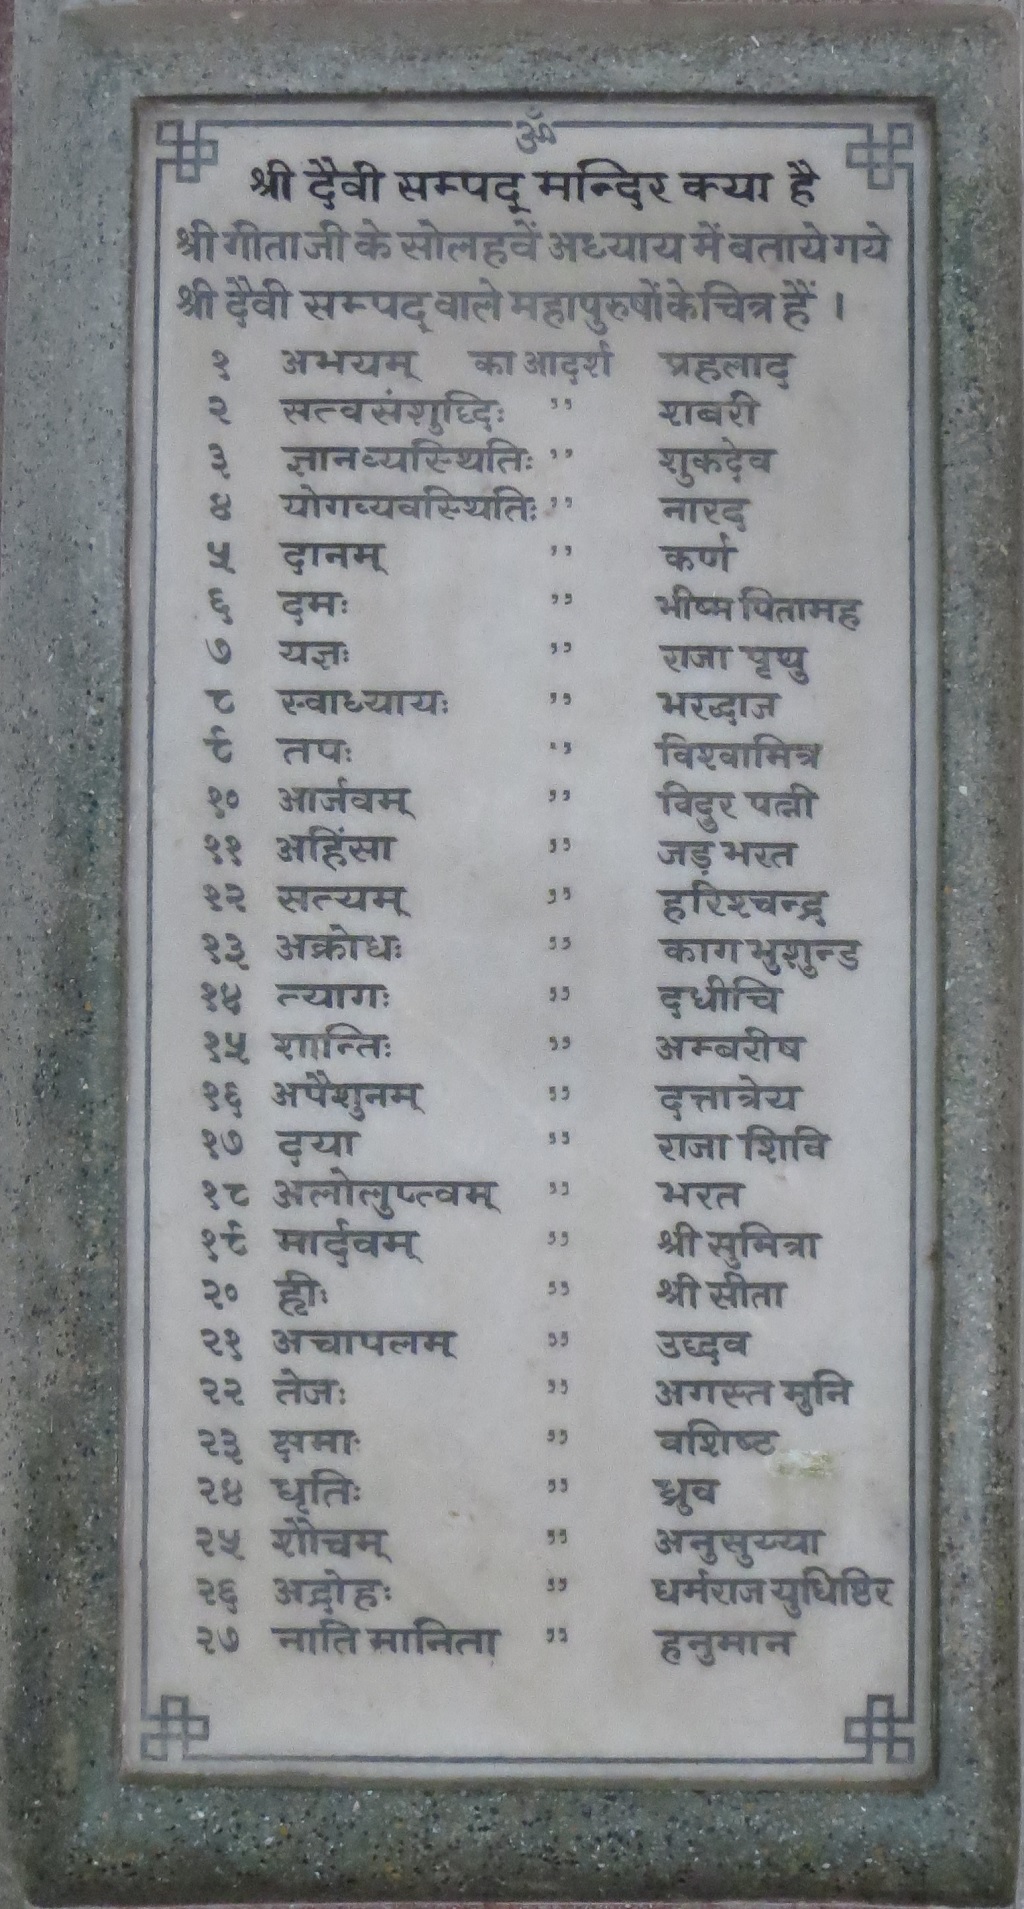 ॐ
श्री दैवी सम्पद् मन्दिर क्या है
श्री गीता जी के सोलहवें अध्याय में बताये गये
श्री दैवी सम्पद् वाले महापुरुषों के चित्र हैं ।
१ अभयम् का आदर्श प्रहलाद
२ सत्वसंशुद्धिः " शबरी
३ ज्ञानव्यस्थितिः " शुकदेव
४ योगव्यवस्थितिः " नारद
५ दानम् " कर्ण
६ दमः " भीष्म पितामह
७ यज्ञः " राजा पृथु
८ स्वाध्यायः " भरद्धाज
९ तपः " विश्वामित्र
१० आर्जवम् " विदुर पत्नी
११ अहिंसा " जड़ भरत
१२ सत्यम् " हरिश्चन्द्र
१३ अक्रोधः " काग भुशुन्ड
१४ त्यागः " दधीचि
१५ शान्तिः " अम्बरीष
१६ अपैशुनम् " दत्तात्रेय
१७ दया " राजा शिवि
१८ अलोलुप्त्वम् " भरत
१९ मार्दवम् " श्री सुमित्रा
२० ह्रीः " श्री सीता
२१ अचापलम् " उद्धव
२२ तेजः " अगस्त मुनि
२३ क्षमाः " वशिष्ट
२४ धृतिः " ध्रुव
२५ शौचम् " अनुसुय्या
२६ अद्रोहः " धर्मराज युधिष्ठिर
२७ नाति मानिता " हनुमान